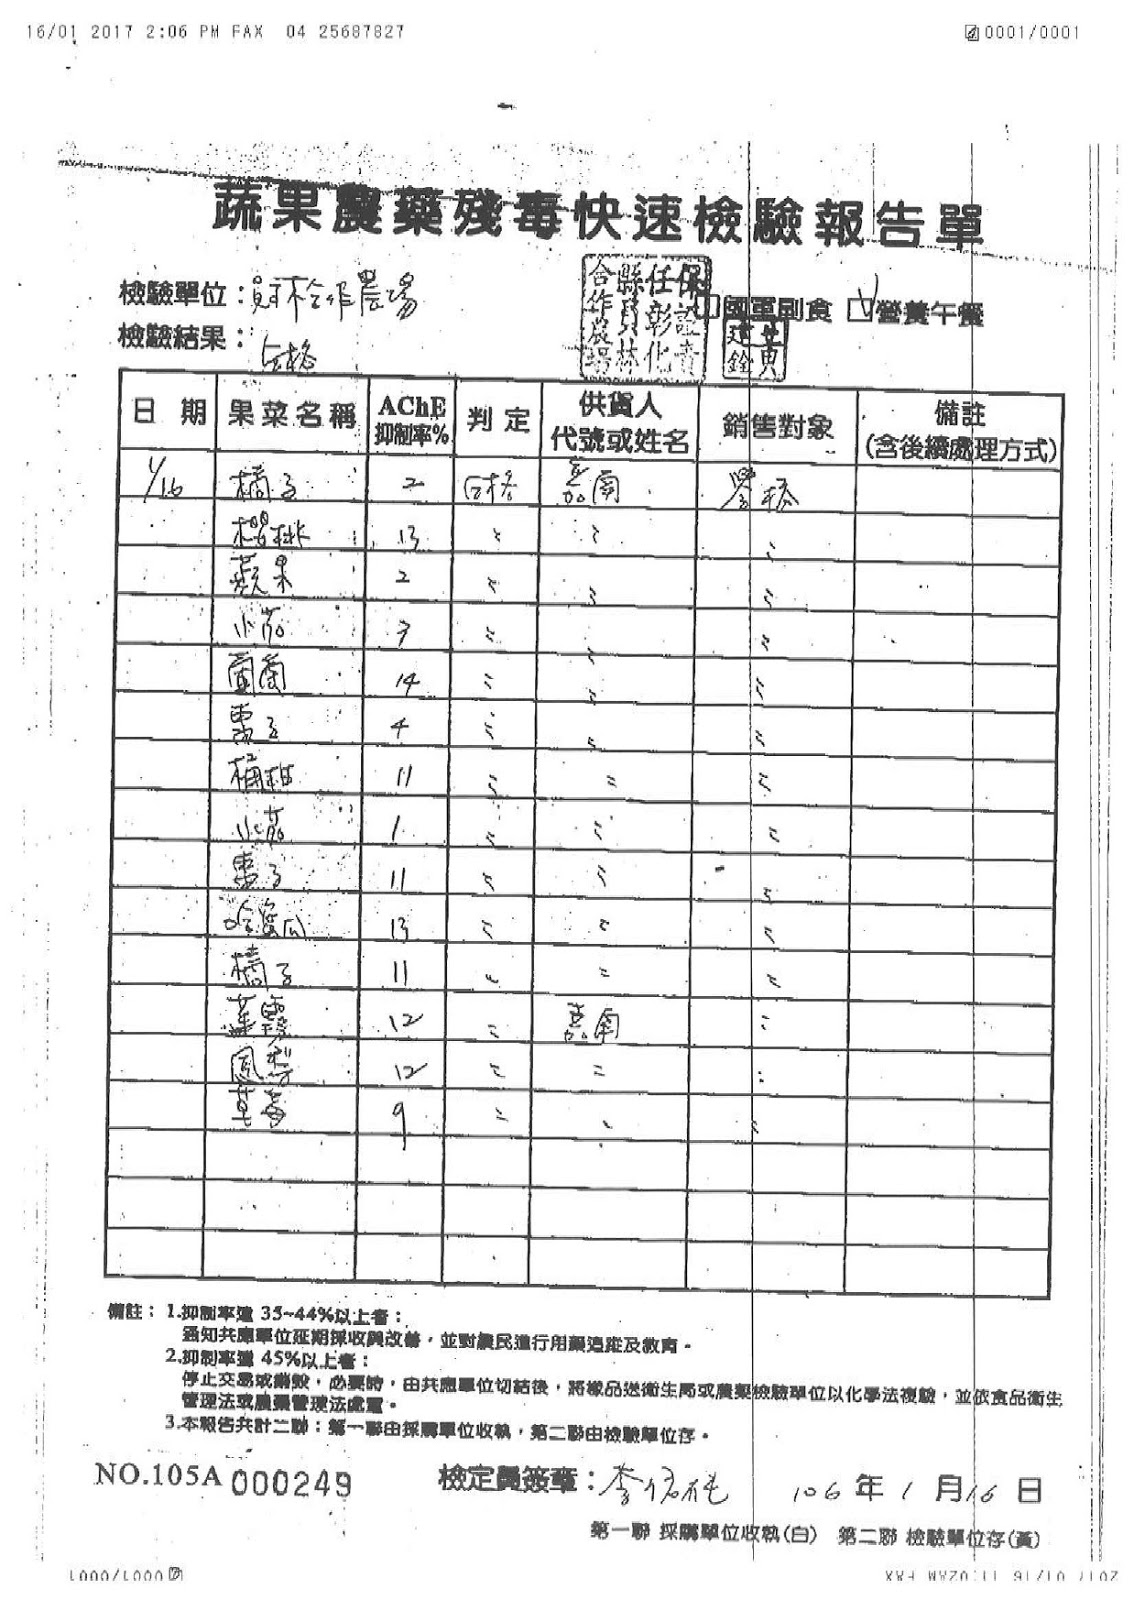 16/01 2017 2:06 PM FAX 04 25687827 0001/0001
蔬果農藥殘毒快速檢驗報告單
檢驗單位：員林合作農場 □國軍副食 ☑營養午餐
檢驗結果：合格
保證責任彰化縣員林合作農場
日 期 果菜名稱 AChE抑制率% 判 定 供貨人代號或姓名 銷售對象 備註(含後續處理方式)
1/16 橘子 2 合格 嘉南 學校
櫻桃 13 〃 〃 〃
蘋果 2 〃 〃 〃
小茄 7 〃 〃 〃
葡萄 14 〃 〃 〃
棗子 4 〃 〃 〃
桶柑 11 〃 〃 〃
小茄 1 〃 〃 〃
棗子 11 〃 〃 〃
哈蜜瓜 13 〃 〃 〃
橘子 11 〃 〃 〃
蓮霧 12 〃 嘉南 〃
鳳梨 12 〃 〃 〃
草莓 9 〃 〃 〃
備註：1.抑制率達 35~44%以上者：
通知共應單位延期採收與改善，並對農民進行用藥追蹤及教育。
2.抑制率達 45%以上者：
停止交易或銷毀，必要時，由共應單位切結後，將樣品送衛生局或農藥檢驗單位以化學法複驗，並依食品衛生
管理法或農藥管理法處置。
3.本報告共計二聯：第一聯由採購單位收執，第二聯由檢驗單位存。
NO.105A 000249 檢定員簽章： 106 年 1 月 16 日
第一聯 採購單位收執(白) 第二聯 檢驗單位存(黃)
2017 01/16 11:02AM FAX 0001/0001